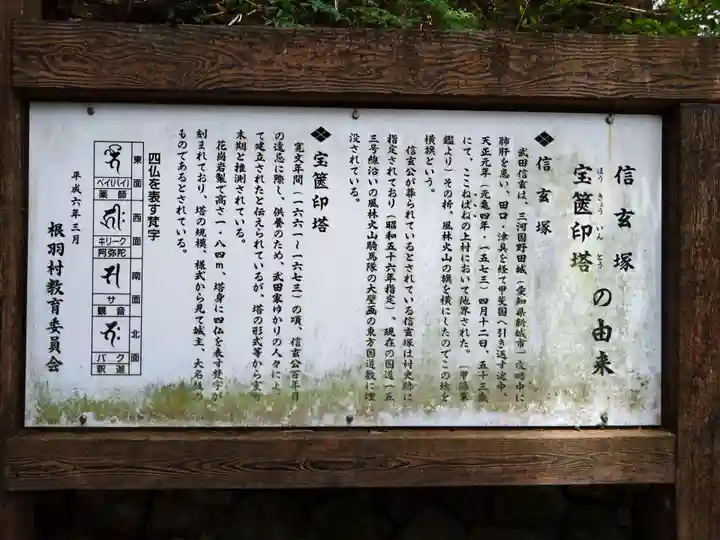 信玄塚
宝篋印塔
ほうきょういんとう
の由来
信玄塚
武田信玄は、三河国野田城（愛知県新城市）攻略中に
肺肝を患い、田口・津具を経て甲斐国へ引き返す途中、
天正元年（元亀四年・一五七三）四月十二日、五十三歳
にて、ここねばねの上村において陣没された。（甲陽軍
鑑より）その折、風林火山の旗を横にしたのでこの地を
横旗という。
信玄公が葬られているとされている信玄塚は村史跡に
指定されており（昭和五十六年指定）、現在の国道一五
三号線沿いの風林火山騎馬隊の大壁画の東方国道敷に埋
没されている。
宝篋印塔
寛文年間（一六六一～一六七三）の頃、信玄公百年目
の遠忌に際し、供養のため、武田家ゆかりの人々によ
て建立されたと伝えられているが、塔の形式等から室町
末期と推測されている。
花崗岩製で高さ一・八四m、塔身に四仏を表す梵字が
刻まれており、塔の規模、様式から見て城主、大名級の
ものであるとされている。
四仏を表す梵字
東面
ベイ(バイ)
薬師
西面
キリーク
阿弥陀
南面
サ
観音
北面
バク
釈迦
平成六年三月
根羽村教育委員会